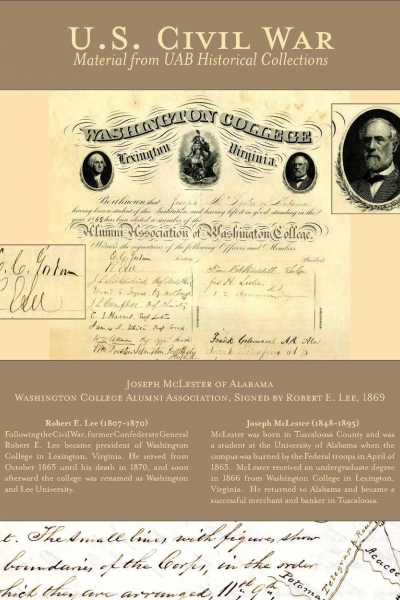 U.S. Civil War
Material from UAB Historical Collections
Washington College
Lexington Virginia.
Be it known, that Joseph McLester of Alabama
having been a student of this Institution, and having left it in good standing in the
year 18 has been elected a member of the
Alumni Association of Washington College.
Witness the signatures of the following Officers and Members.
President
C. C. Gordon
R E Lee
J. L. Campbell
C. J. Harris
James J. White
Wm Preston Johnston
Frank
Joseph McLester of Alabama
Washington College Alumni Association, Signed by Robert E. Lee, 1869
Robert E. Lee (1807-1870)
Following the Civil War, former Confederate General
Robert E. Lee became president of Washington
College in Lexington, Virginia. He served from
October 1865 until his death in 1870, and soon
afterward the college was renamed as Washington
and Lee University.
Joseph McLester (1848-1895)
McLester was born in Tuscaloosa County and was
a student at the University of Alabama when the
campus was burned by the Federal troops in April of
1865. McLester received an undergraduate degree
in 1866 from Washington College in Lexington,
Virginia. He returned to Alabama and became a
successful merchant and banker in Tuscaloosa.
t. The small lines with figures show
boundaries of the Corps, in the order
which they are arranged, 11th, 9th,
Potomac
Telegraph Road
Acacee